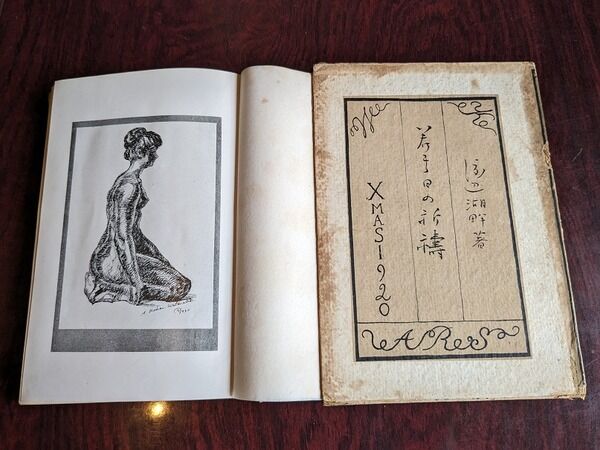 渡辺湖畔著
若き日の祈禱
XMAS 1920
ARS